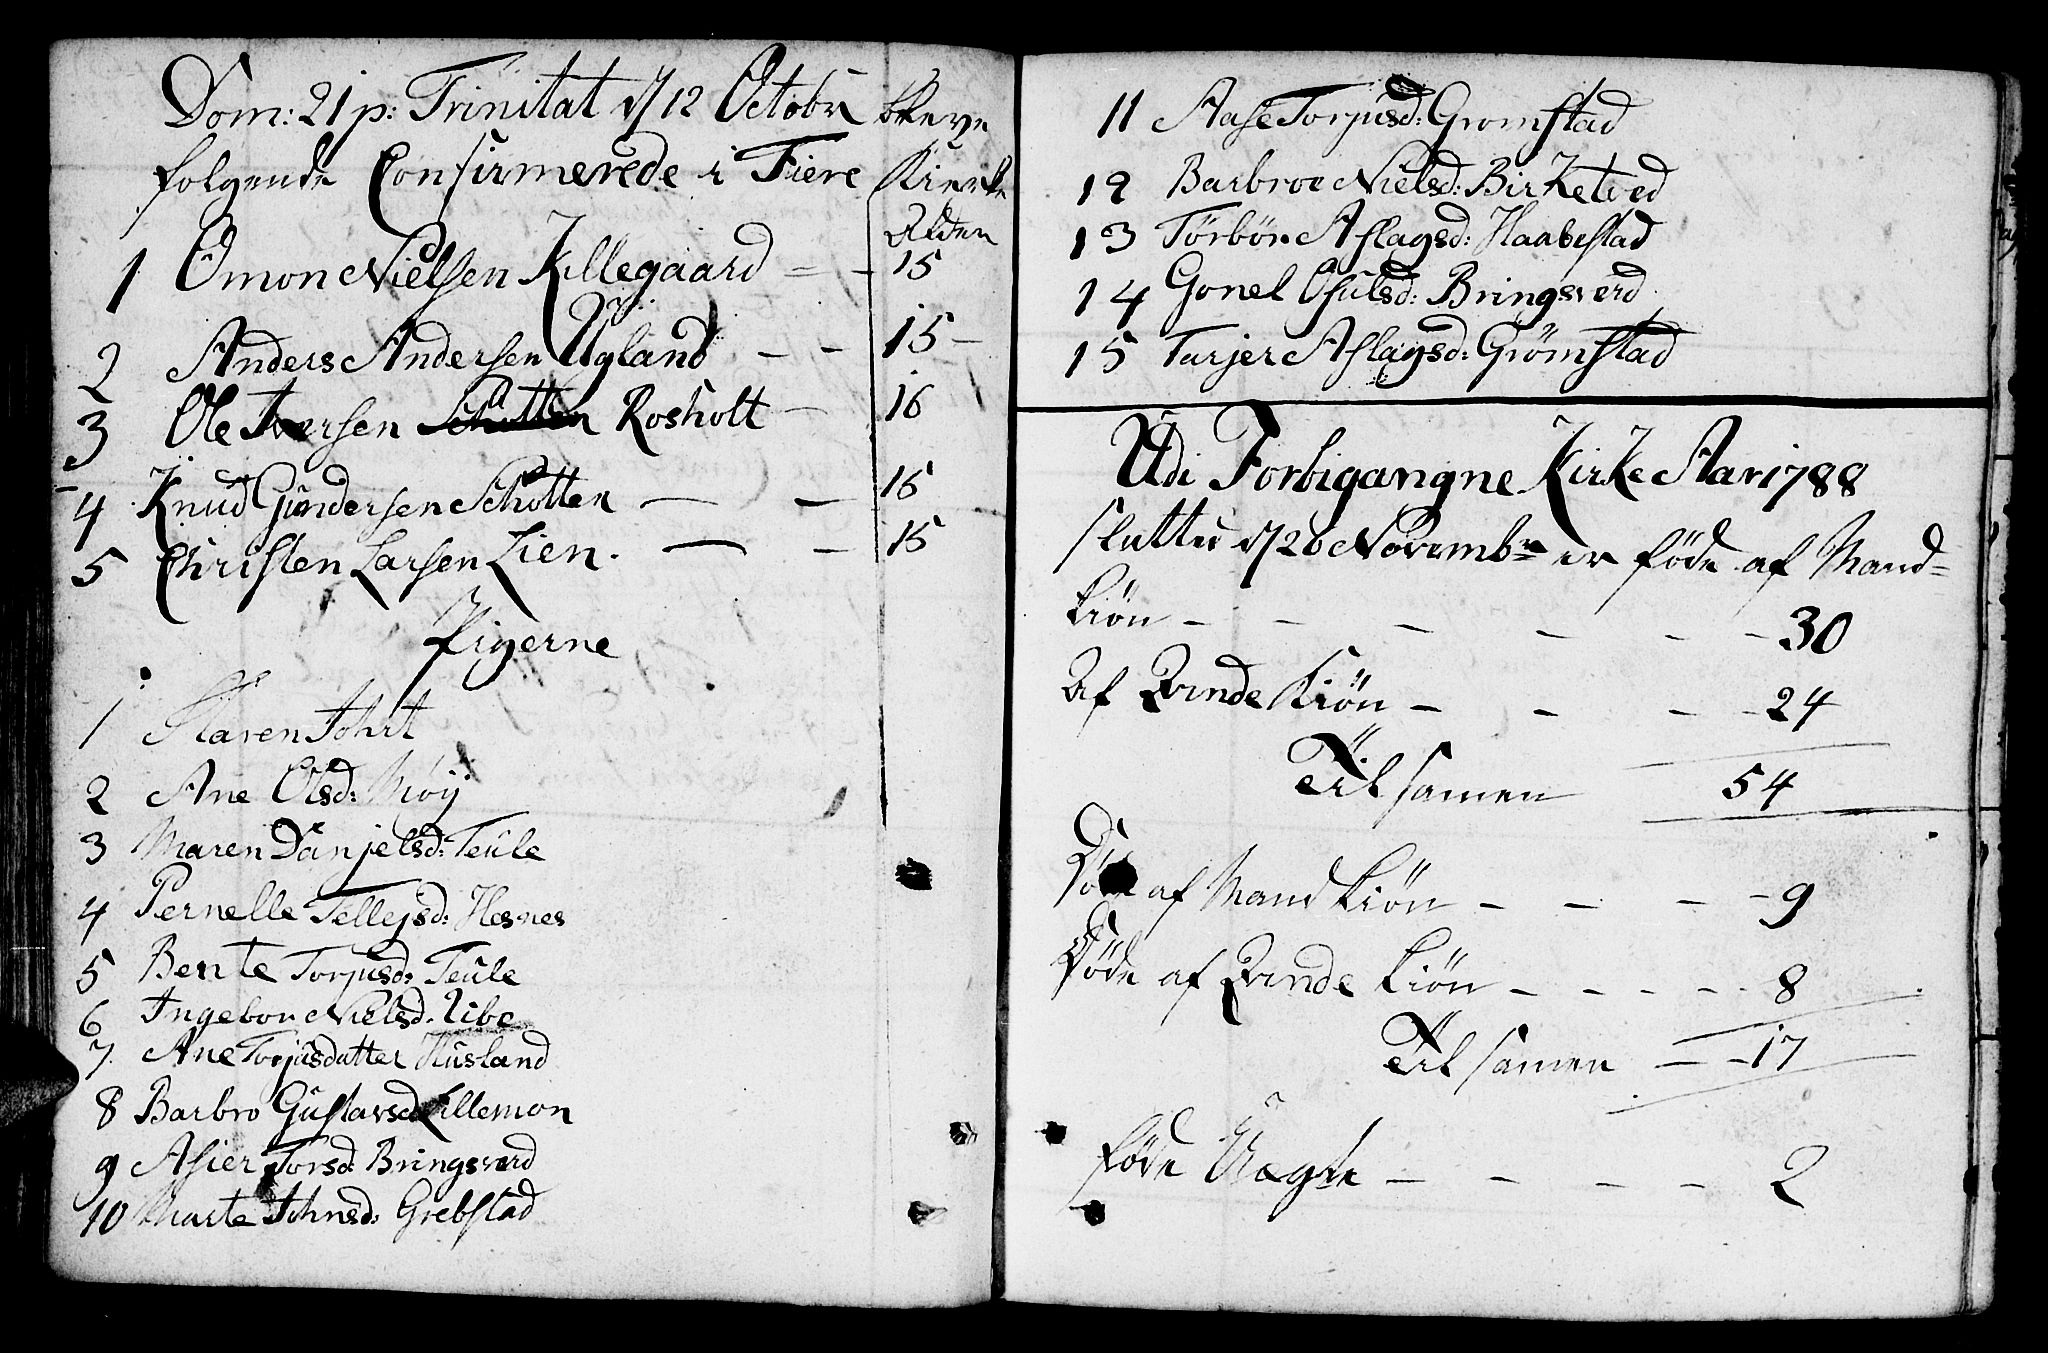 Dom: 21 p: Trinitat d/12 Octobr bleve
folgende Confirmerede i Fiere Kierke
Alder
1 Omon Nielsen Killegaard = - 15
2 Anders Andersen Ugland - - 15 -
3 Ole Iversen Schotten Rosholt - 16
4 Knud Gundersen Schotten - - 15
5 Christen Larsen Lien. - - 15
Pigerne
1 Maren Fohrt
2 Ane Olsd: Møij
3 Maren Danjelsd: Teule
4 Pernelle Tellejsd: Hesnes
5 Bente Torjusd: Teule
6 Ingebor Nielsd: Vibe
7. Ane Torjusdatter Husland
8 Barbro Gustavsd Lillemon
9 Asier Torsd: Bringsverd
10 Marte Johnsd: Grebstad
11 Aase Torjusd: Gromstad
12 Barbroe Nielsd: Birketved
13 Tørbør Aslagsd: Haabestad
14 Gonel Osulsd: Bringsverd
15 Tarjer Aslagsd: Grømstad
Udi Forbigangne Kirke Aar 1788
sluttes d/26 Novembr er føde af Mand=
kiön - - - - - - 30
Af Qvinde Kiön - - - - 24
Til samen 54
Döde af Mand kiön - - - - 9
Döde af Qvinde kiön - - - - - 8
Til samen - - 17
føde Uægte - - - - 2